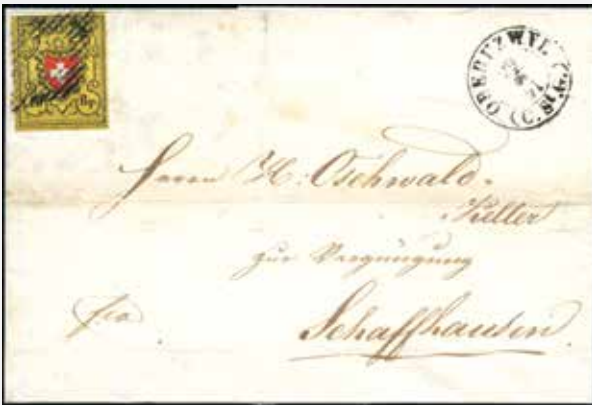 10 Rp.
OBERUZWYL (C. St. G.)
Herrn H: Oschwald.
Keller
zur Vergnügung
fco
Schaffhausen